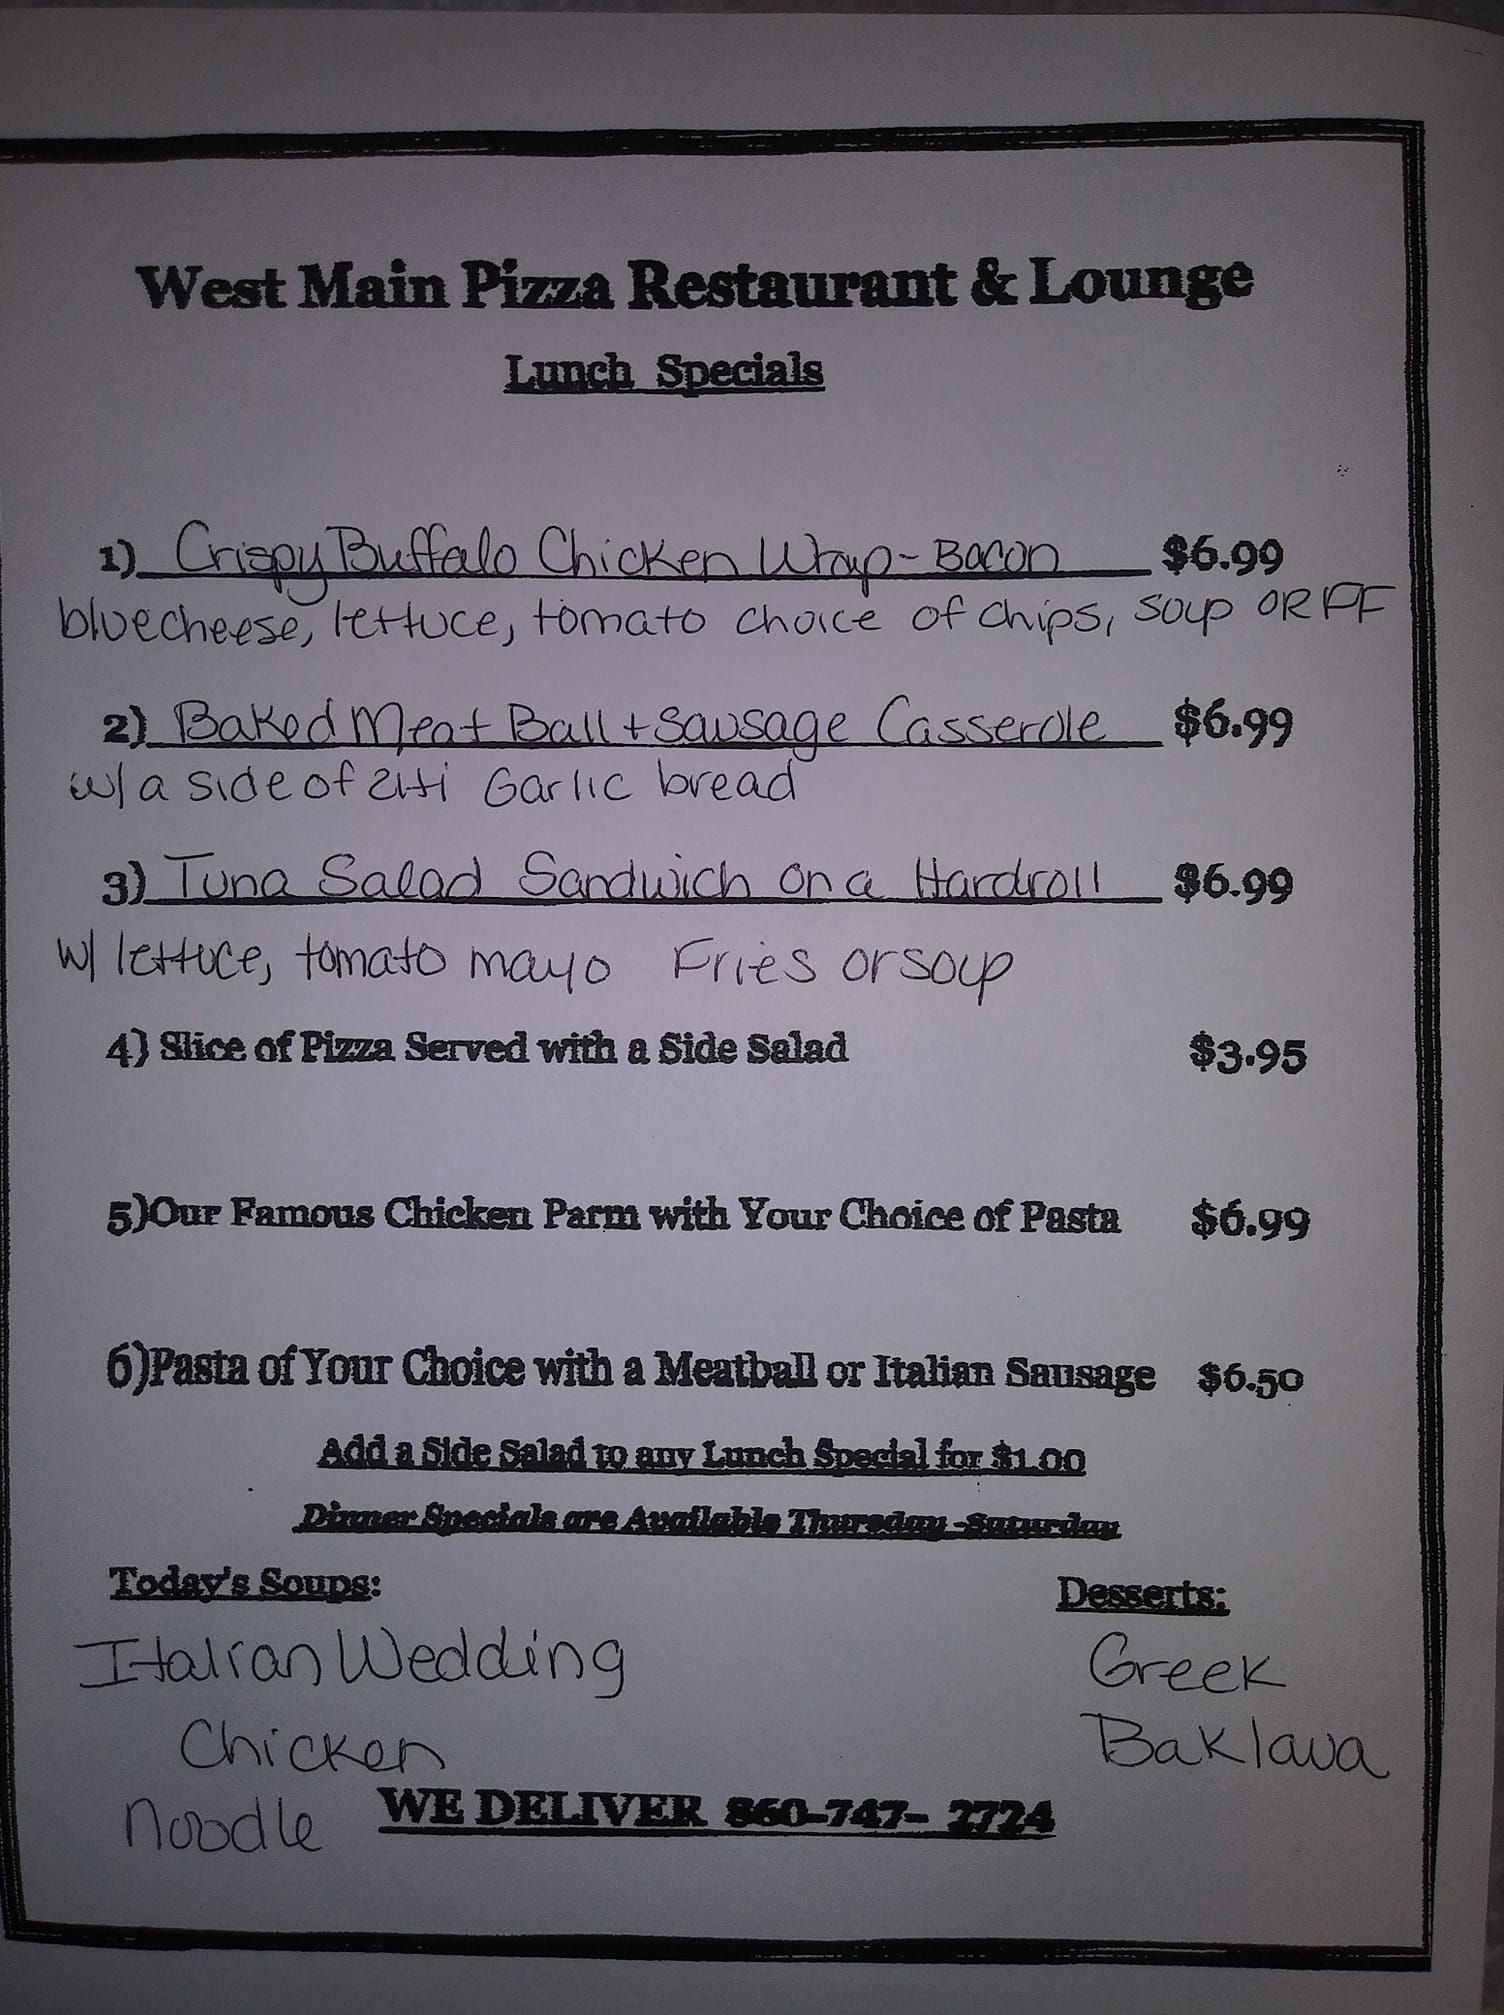 West Main Pizza Restaurant & Lounge
Lunch Specials
1) Crispy Buffalo Chicken Wrap - Bacon $6.99
bluecheese, lettuce, tomato choice of chips, soup OR FF
2) Baked Meat Ball + Sausage Casserole $6.99
w/ a side of ziti Garlic bread
3) Tuna Salad Sandwich on a Hardroll $6.99
w/ lettuce, tomato mayo Fries or soup
4) Slice of Pizza Served with a Side Salad $3.95
5)Our Famous Chicken Parm with Your Choice of Pasta $6.99
6)Pasta of Your Choice with a Meatball or Italian Sausage $6.50
Add a Side Salad to any Lunch Special for $1.00
Dinner Specials are Available Thursday -Saturday
Today's Soups: Desserts:
Italian Wedding Greek
Chicken Baklava
noodle WE DELIVER 860-747- 2724